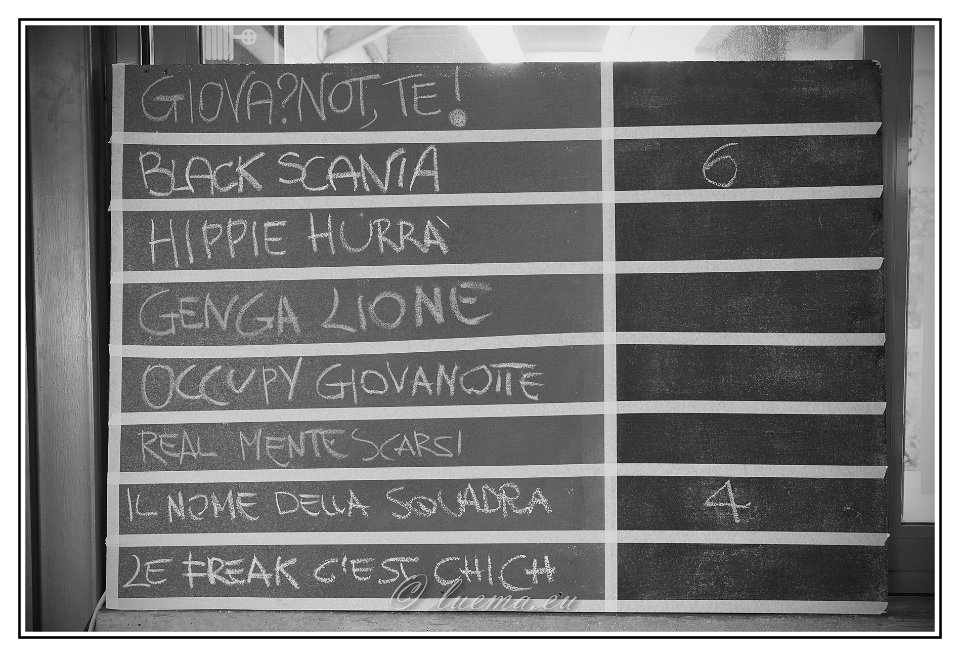 GIOVA?NOT,TE!
BLACK SCANIA 6
HIPPIE HURRÀ
GENGA LIONE
OCCUPY GIOVANOTTE
REAL MENTE SCARSI
IL NOME DELLA SQUADRA 4
LE FREAK C'EST CHICH
© luema.eu